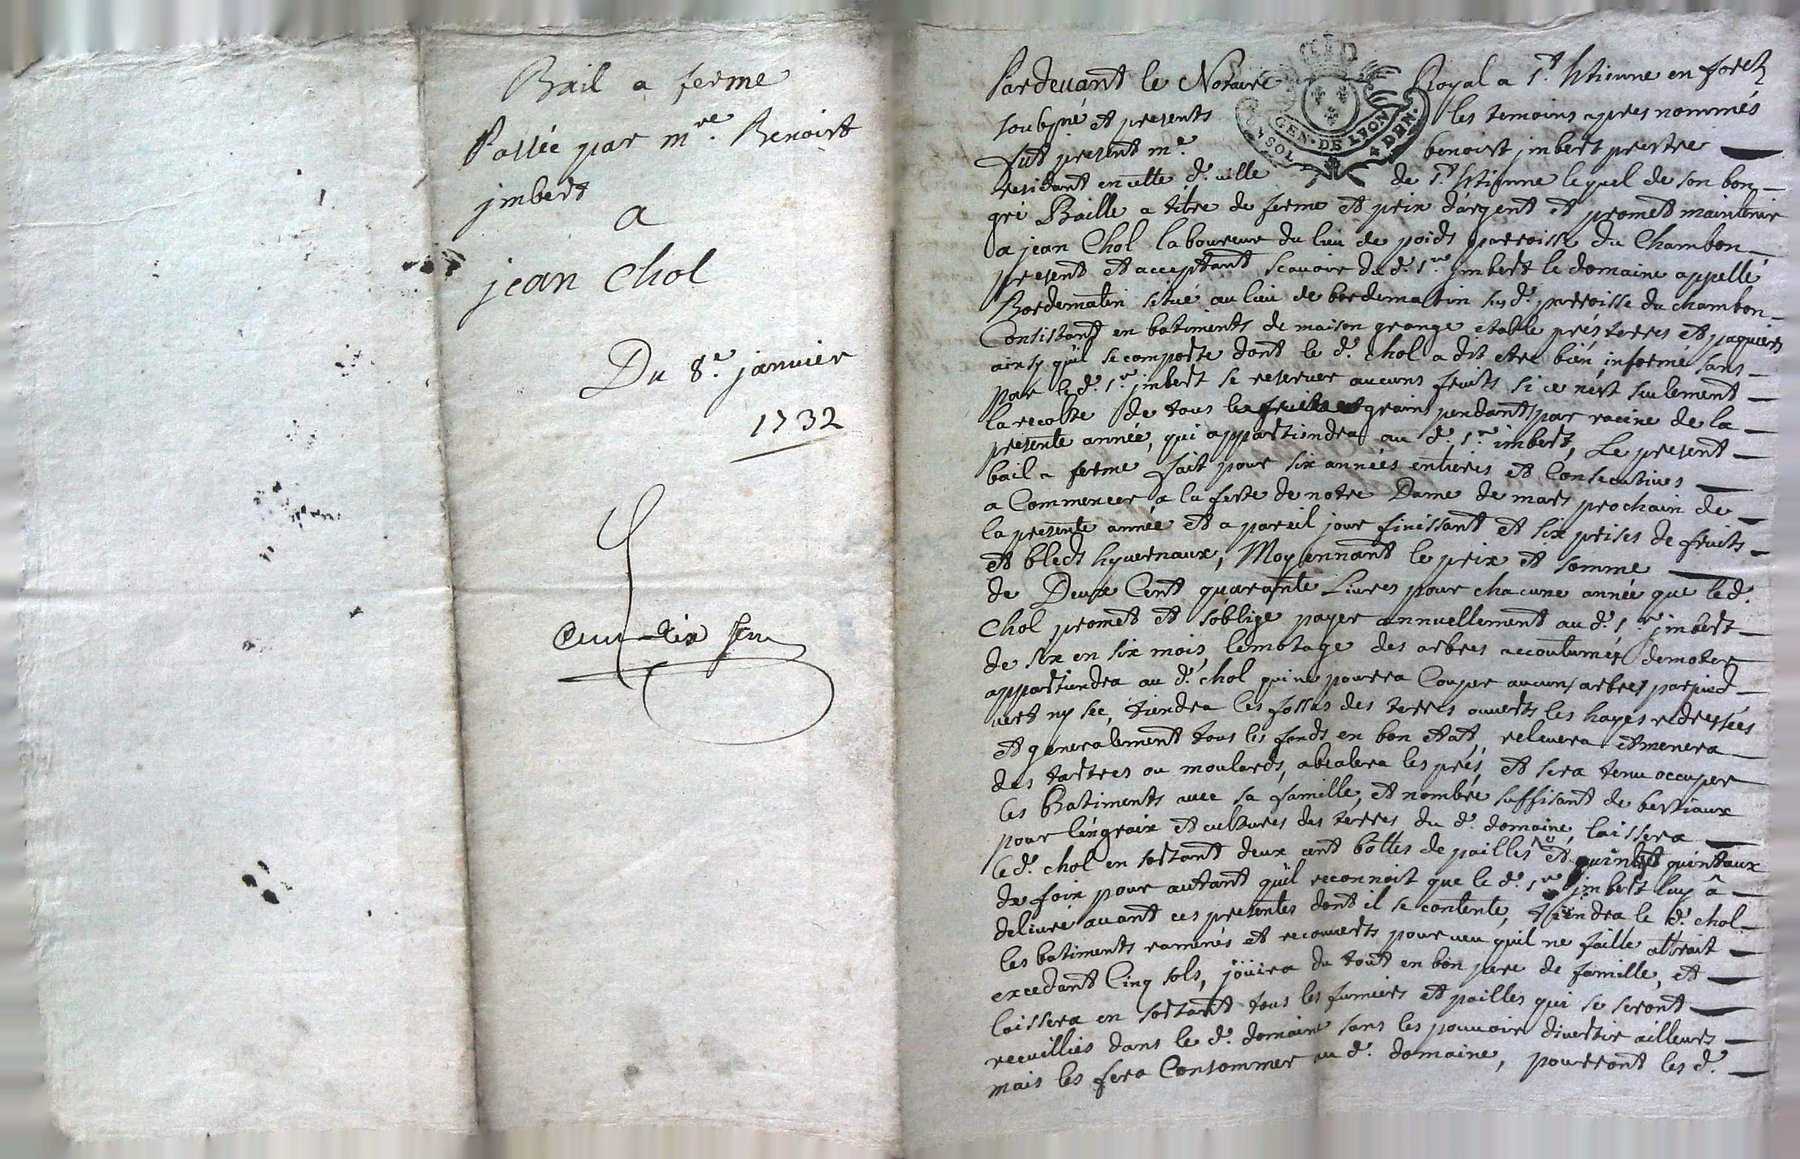 Bail a ferme
Passée par mre. Benoist
jmbert
a
jean Chol
Du 8e. janvier
1732
Pardevant le Notaire Royal a St. Etienne en forest
soubsné et presents les temoins apres nommés
GEN. DE LYON
SOL 4 DEN
fut present me. benoist jmbert prestre
residant en cette d. ville de St. Etienne lequel de son bon
gré Baille a titre de ferme et prix dargent et promet maintenir
a jean Chol laboureur du lieu de poids parroisse du Chambon
present et acceptant scavoir du d. sr. jmbert le domaine appellé
Bordematin situé au lieu de bordematin susd. parroisse du chambon
Consistant en batiments de maison grange etable prés terres et paquiers
ainsy quil se comporte dont le d. chol a dit etre bien informé sans
par le d. sr. jmbert se reserver aucuns fruits si ce n'est seulement
la recolte de tous les grains pendants par racine de la
presente année, qui appartiendra au d. sr. imbert, Le present
bail a ferme fait pour six années entieres et Consecutives
a Commencer a la feste de notre Dame de mars prochain de
la presente année et a pareil jour finissant et six prises de fruits
et bleds hyvernaux, Moyennant le prix et somme
de Deux Cent quarante Livres pour chacune année que le d.
Chol promet et s'oblige payer annuellement au d. sr. jmbert
de six en six mois, lemotage des arbres accoutumes demoter
appartiendra au d. chol qui ne pourra Couper aucuns arbres par pied
vert ny sec, tiendra les fosses des terres ouverts les hayes redressées
et generalement tous les fonds en bon etat, relevera et menera
des tartres ou moulards, abealera les prés, et sera tenu occuper
les Batiments avec sa famille, et nombre suffisant de bestiaux
pour l'engraix et cultures des terres du d. domaine, laissera
le d. chol en sortant deux cent bottes de pailles et quintaux
de foin pour autant quil reconnoit que le d. sr. jmbert luy â
delivré avant ces presentes dont il se contente, tiendra le d. chol
les batiments ramenés et recouverts pourveu quil ne faille attrait
excedant Cinq sols, joüira du tout en bon pere de famille, et
laissera en sortant tous les fumiers et pailles qui se seront
recuillies dans le d. domaine sans les pouvoir divertir ailleurs
mais les fera Consommer au d. domaine, pourront les d.